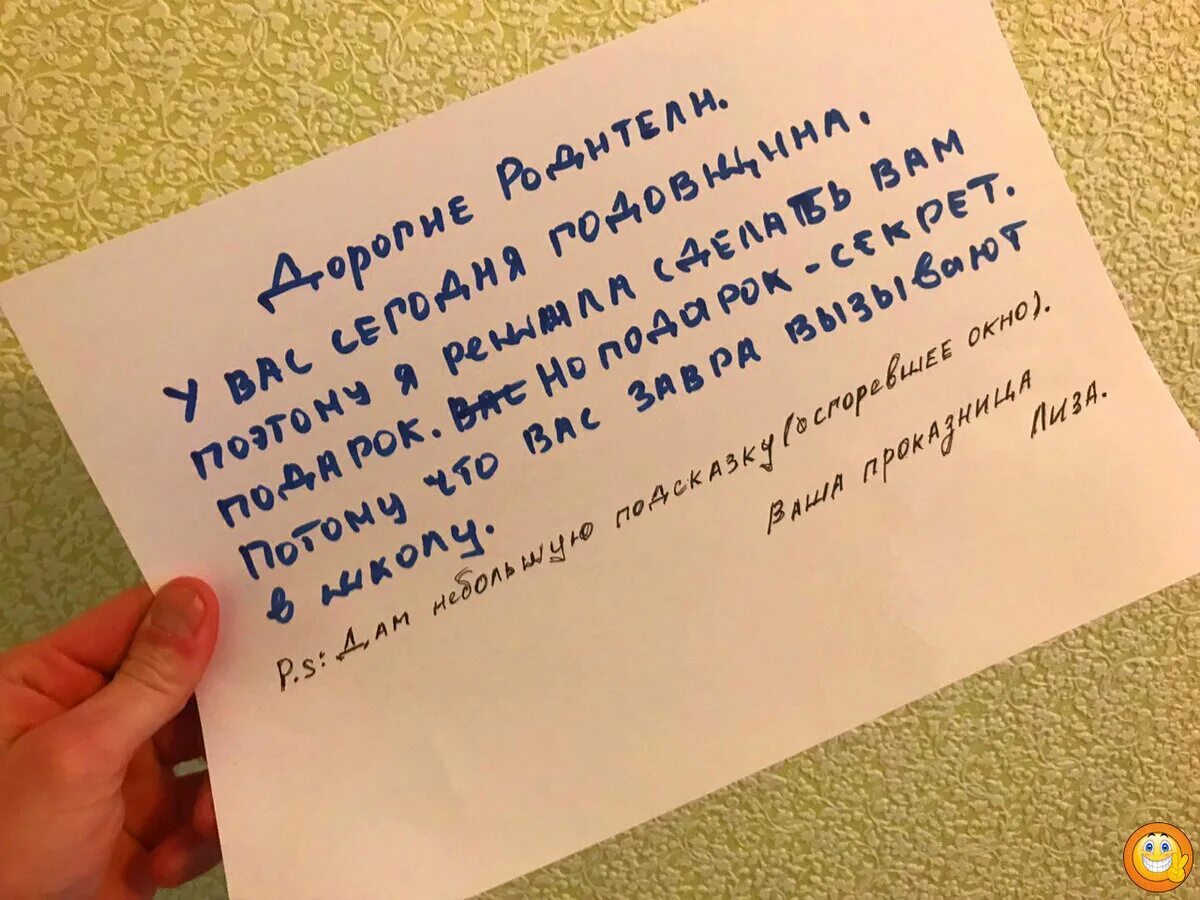 Дорогие Родители.
У вас сегодня годовщина.
Поэтому я решила сделать вам
подарок. вас Но подарок - секрет.
Потому что вас завра вызывают
в школу.
P.s: Дам небольшую подсказку (сгоревшее окно).
Ваша проказница
Лиза.